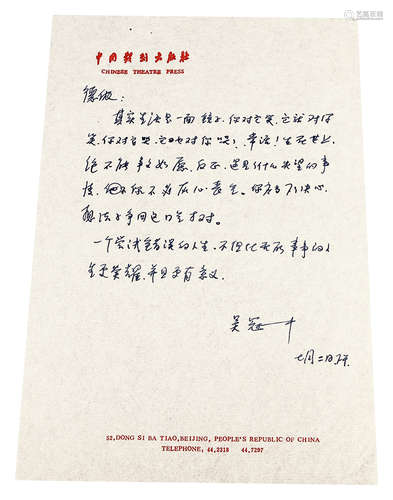 中国戏剧出版社
CHINESE THEATRE PRESS
德做：
其实生活是一面镜子，你对它笑，它就对你
笑，你对它哭，它也对你哭！幸运！生在世上，
绝不能事事如愿，反正，遇见什么失望的事
情，你不必灰心丧气。你应当下个决心，
想法子争回这口气才对。
一个尝试错误的人生，不但比无所事事的人
生更荣耀，并且更有意义。
吴冠中
七月二日
52, DONG SI BA TIAO, BEIJING, PEOPLE'S REPUBLIC OF CHINA
TELEPHONE, 44,2318 44,7207